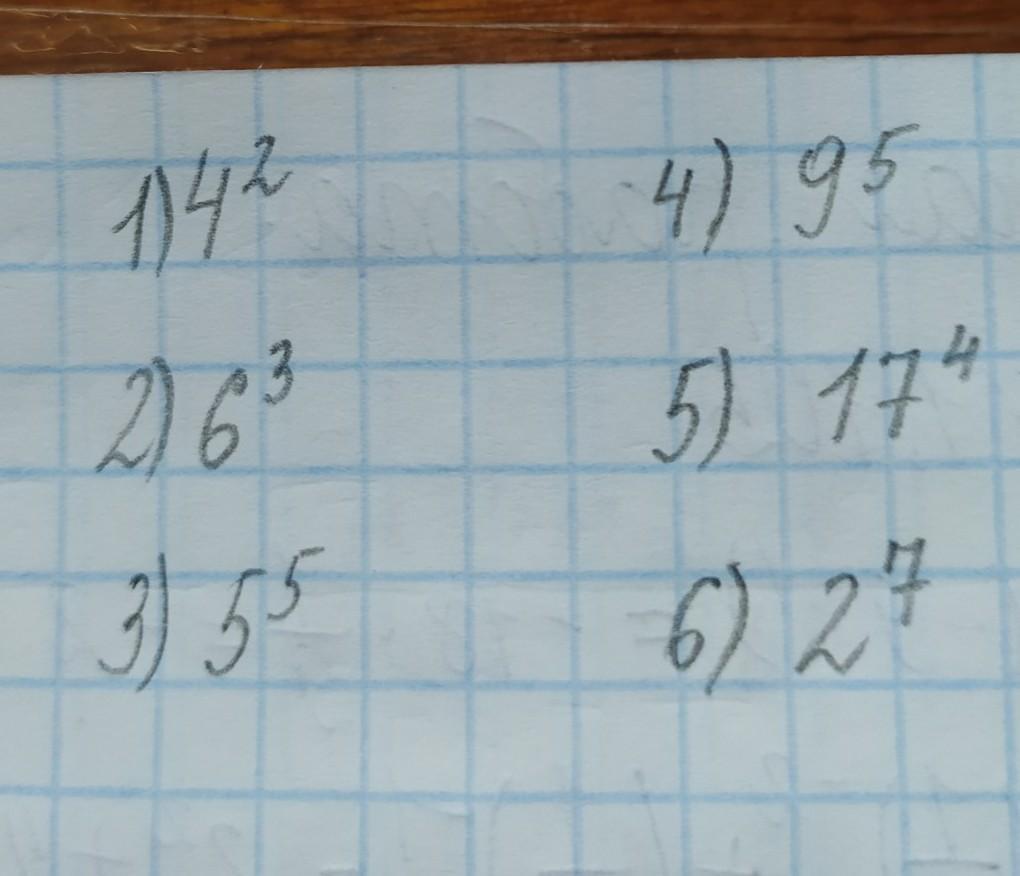 1) 4²
2) 6³
3) 5⁵
4) 9⁵
5) 17⁴
6) 2⁷